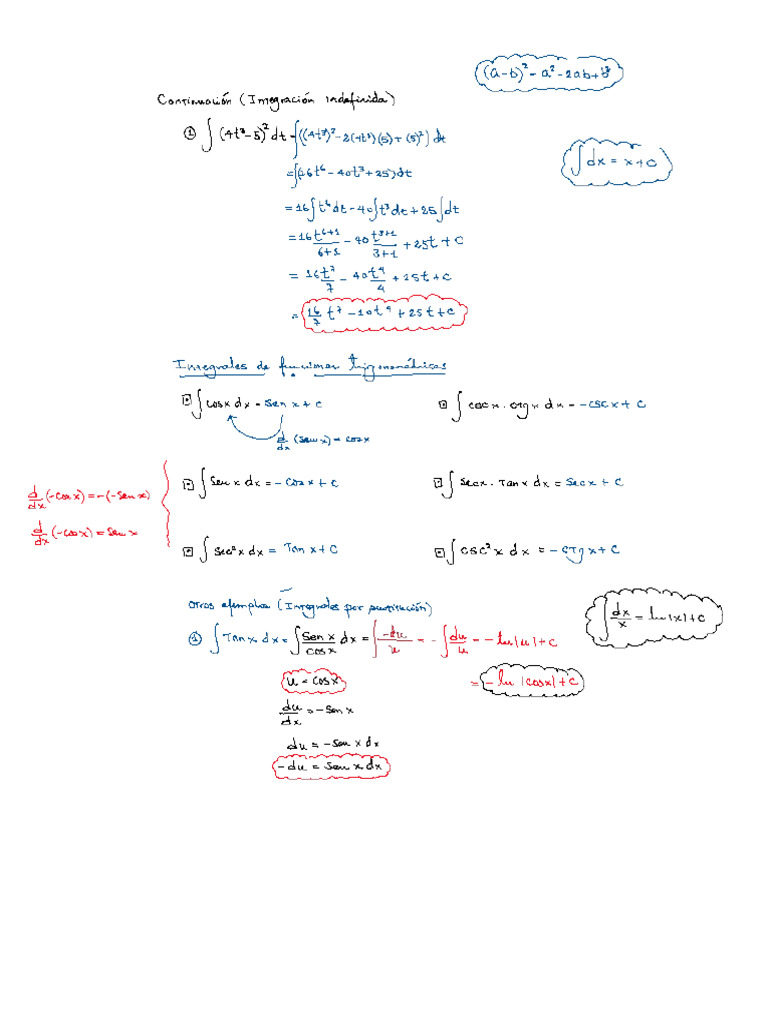 (a-b)² = a² - 2ab + b²
Continuación (Integración indefinida)
① ∫(4t³-5)² dt = ∫((4t³)² - 2(4t³)(5) + (5)²) dt
∫dx = x + c
= ∫(16t⁶ - 40t³ + 25) dt
= 16∫t⁶ dt - 40∫t³ dt + 25∫dt
= 16 t⁶⁺¹/6+1 - 40 t³⁺¹/3+1 + 25t + C
= 16t⁷/7 - 40t⁴/4 + 25t + C
= 16/7 t⁷ - 10t⁴ + 25t + C
Integrales de funciones trigonométricas
∫cosx dx = Sen x + C
∫cscx · ctgx dx = -cscx + C
d/dx (senx) = cosx
∫Senx dx = -Cosx + C
∫Secx · Tanx dx = Secx + C
d/dx (-cosx) = -(-senx)
d/dx (-cosx) = senx
∫Sec²x dx = Tanx + C
∫CSC²x dx = -ctgx + C
Otros ejemplos (Integrales por sustitución)
① ∫Tanx dx = ∫Senx/cosx dx = ∫-du/u = -∫du/u = -ln|u| + C
∫dx/x = ln|x| + C
u = cosx
= -ln|cosx| + C
du/dx = -senx
du = -senx dx
-du = senx dx